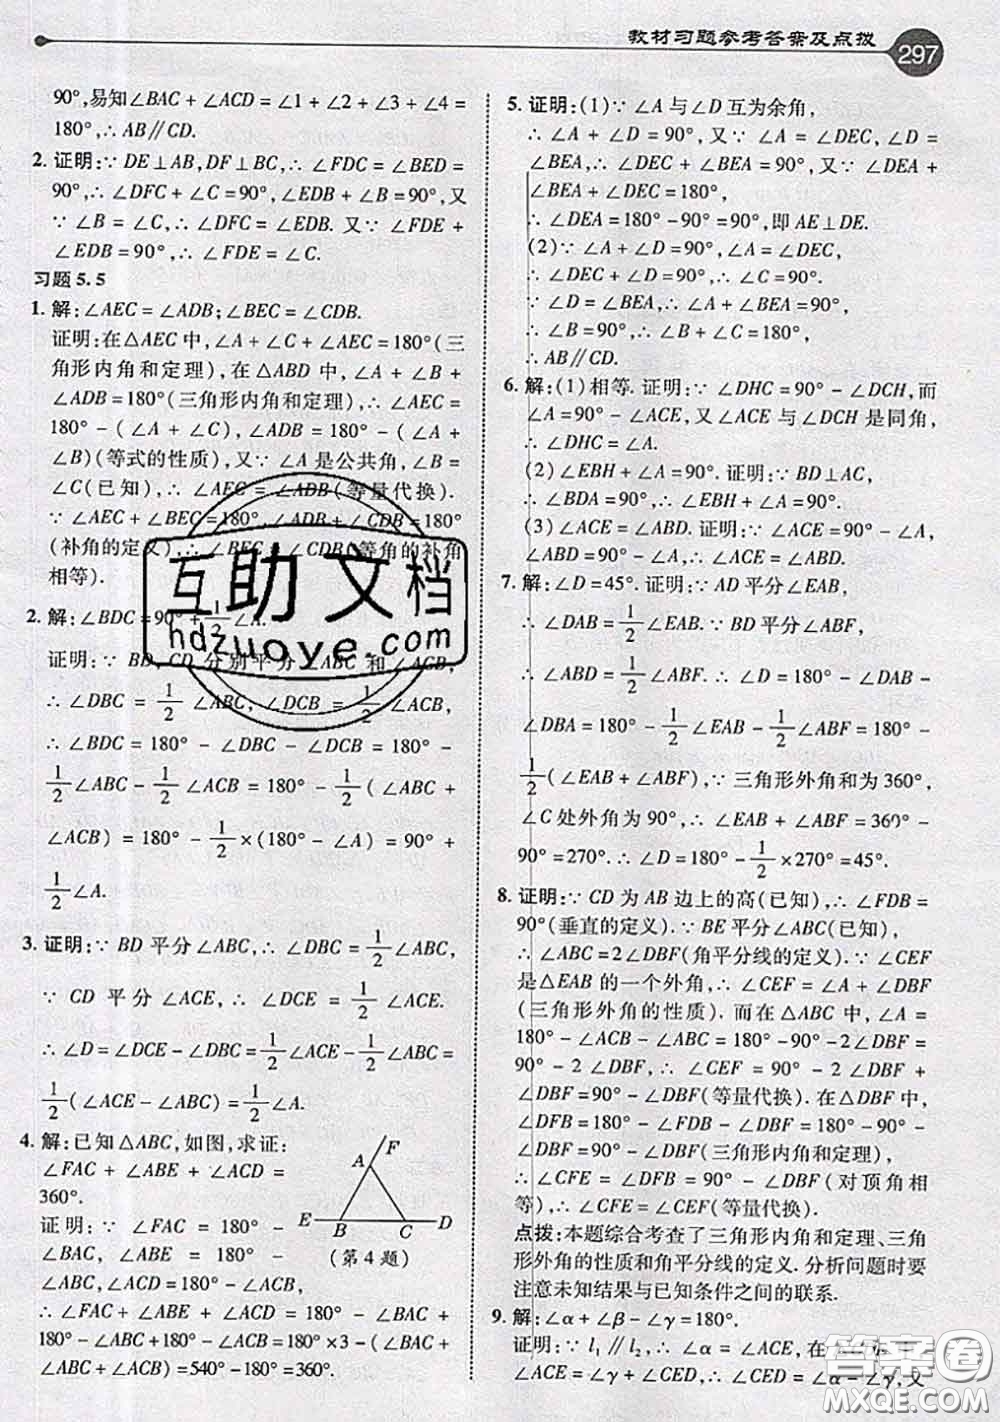 教材习题参考答案及点拨
297
90°,易知∠BAC + ∠ACD = ∠1 + ∠2 + ∠3 + ∠4 =
180°,∴ AB∥CD.
2. 证明:∵ DE⊥AB,DF⊥BC,∴ ∠FDC = ∠BED =
90°,∴ ∠DFC + ∠C = 90°,∠EDB + ∠B = 90°,又
∵ ∠B = ∠C,∴ ∠DFC = ∠EDB. 又∵ ∠FDE +
∠EDB = 90°,∴ ∠FDE + ∠DFC = 90°.
习题 5.5
1. 解:∠AEC = ∠ADB;∠BEC = ∠CDB.
证明:在△AEC 中,∠A + ∠C + ∠AEC = 180°(三
角形内角和定理),在△ABD 中,∠A + ∠B +
∠ADB = 180°(三角形内角和定理),∴ ∠AEC =
180° - (∠A + ∠C),∠ADB = 180° - (∠A +
∠B)(等式的性质),又∵ ∠A 是公共角,∠B =
∠C(已知),∴ ∠AEC = ∠ADB(等量代换).
∵ ∠AEC + ∠BEC = 180°,∠ADB + ∠CDB = 180°
(补角的定义),∴ ∠BEC = ∠CDB(等角的补角
相等).
2. 解:∠BDC = 90° + 1/2∠A.
证明:∵ BD,CD 分别平分∠ABC 和∠ACB,
∴ ∠DBC = 1/2∠ABC,∠DCB = 1/2∠ACB,
∴ ∠BDC = 180° - ∠DBC - ∠DCB = 180° -
1/2∠ABC - 1/2∠ACB = 180° - 1/2(∠ABC +
∠ACB) = 180° - 1/2×(180° - ∠A) = 90° +
1/2∠A.
3. 证明:∵ BD 平分∠ABC,∴ ∠DBC = 1/2∠ABC,
∵ CD 平分∠ACE,∴ ∠DCE = 1/2∠ACE.
∴ ∠D = ∠DCE - ∠DBC = 1/2∠ACE - 1/2∠ABC =
1/2(∠ACE - ∠ABC) = 1/2∠A.
4. 解:已知△ABC,如图,求证:
∠FAC + ∠ABE + ∠ACD =
360°.
证明:∵ ∠FAC = 180° -
∠BAC,∠ABE = 180° -
∠ABC,∠ACD = 180° - ∠ACB,
∴ ∠FAC + ∠ABE + ∠ACD = 180° - ∠BAC +
180° - ∠ABC + 180° - ∠ACB = 180°×3 - (∠BAC +
∠ABC + ∠ACB) = 540° - 180° = 360°.
F
A
E
B
C
D
(第 4 题)
5. 证明:(1)∵ ∠A 与∠D 互为余角,
∴ ∠A + ∠D = 90°,又∵ ∠A = ∠DEC,∠D =
∠BEA,∴ ∠DEC + ∠BEA = 90°,又∵ ∠DEA +
∠BEA + ∠DEC = 180°,
∴ ∠DEA = 180° - 90° = 90°,即 AE⊥DE.
(2)∵ ∠A + ∠D = 90°,∠A = ∠DEC,
∴ ∠DEC + ∠D = 90°,∴ ∠C = 90°.
∵ ∠D = ∠BEA,∴ ∠A + ∠BEA = 90°,
∴ ∠B = 90°,∴ ∠B + ∠C = 180°,
∴ AB∥CD.
6. 解:(1)相等. 证明:∵ ∠DHC = 90° - ∠DCH,而
∠A = 90° - ∠ACE,又∠ACE 与∠DCH 是同角,
∴ ∠DHC = ∠A.
(2)∠EBH + ∠A = 90°. 证明:∵ BD⊥AC,
∴ ∠BDA = 90°,∴ ∠EBH + ∠A = 90°.
(3)∠ACE = ∠ABD. 证明:∵ ∠ACE = 90° - ∠A,
∠ABD = 90° - ∠A,∴ ∠ACE = ∠ABD.
7. 解:∠D = 45°. 证明:∵ AD 平分∠EAB,
∴ ∠DAB = 1/2∠EAB. ∵ BD 平分∠ABF,
∴ ∠ABD = 1/2∠ABF. ∴ ∠D = 180° - ∠DAB -
∠DBA = 180° - 1/2∠EAB - 1/2∠ABF = 180° -
1/2(∠EAB + ∠ABF),∵ 三角形外角和为 360°,
∠C 处外角为 90°,∴ ∠EAB + ∠ABF = 360° -
90° = 270°. ∴ ∠D = 180° - 1/2×270° = 45°.
8. 证明:∵ CD 为 AB 边上的高(已知),∴ ∠FDB =
90°(垂直的定义). ∵ BE 平分∠ABC(已知),
∴ ∠ABC = 2∠DBF(角平分线的定义). ∵ ∠CEF
是△EAB 的一个外角,∴ ∠CEF = ∠A + ∠DBF
(三角形外角的性质). 而在△ABC 中,∠A =
180° - ∠ACB - ∠ABC = 180° - 90° - 2∠DBF =
90° - 2∠DBF,∴ ∠CEF = 90° - 2∠DBF +
∠DBF = 90° - ∠DBF(等量代换). ∵ 在△DBF 中,
∠DFB = 180° - ∠FDB - ∠DBF = 180° - 90° -
∠DBF = 90° - ∠DBF(三角形内角和定理),
∴ ∠CFE = ∠DFB = 90° - ∠DBF(对顶角相
等),∴ ∠CFE = ∠CEF(等量代换).
点拨:本题综合考查了三角形内角和定理、三角
形外角的性质和角平分线的定义. 分析问题时要
注意未知结果与已知条件之间的联系.
9. 解:∠α + ∠β - ∠γ = 180°.
证明:∵ l₁∥l₂,∴ ∠α = ∠ACE,在
∠ACE = ∠CED + ∠γ,∴ ∠CED = ∠α - ∠γ,又
互助文档
hdzuoye.com
答案圈
MXQE.COM